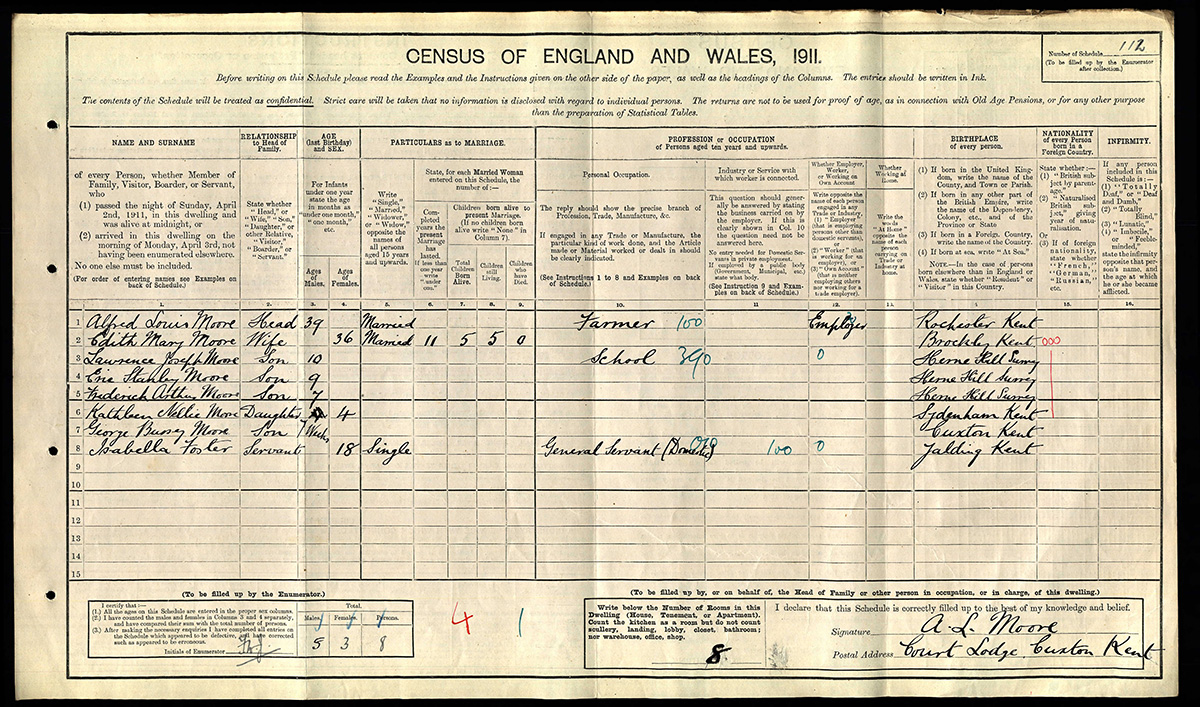 CENSUS OF ENGLAND AND WALES, 1911.
Number of Schedule 112
(To be filled up by the Enumerator
after collection.)
Before writing on this Schedule please read the Examples and the Instructions given on the other side of the paper, as well as the headings of the Columns. The entries should be written in Ink.
The contents of the Schedule will be treated as confidential. Strict care will be taken that no information is disclosed with regard to individual persons. The returns are not to be used for proof of age, as in connection with Old Age Pensions, or for any other purpose
than the preparation of Statistical Tables.
NAME AND SURNAME
of every Person, whether Member of
Family, Visitor, Boarder, or Servant,
who
(1) passed the night of Sunday, April
2nd, 1911, in this dwelling and
was alive at midnight, or
(2) arrived in this dwelling on the
morning of Monday, April 3rd, not
having been enumerated elsewhere.
No one else must be included.
(For order of entering names see Examples on
back of Schedule.)
RELATIONSHIP
to Head of
Family.
State whether
"Head," or
"Wife," "Son,"
"Daughter," or
other Relative,
"Visitor,"
"Boarder," or
"Servant."
AGE
(last Birthday)
and SEX.
For Infants
under one year
state the
age in months
as "under one
month," "one month,"
etc.
Ages of Males.
Ages of Females.
PARTICULARS as to MARRIAGE.
Write
"Single,"
"Married,"
"Widower,"
or "Widow,"
opposite the
names of
all persons
aged 15 years
and upwards.
State, for each Married Woman
entered on this Schedule, the
number of:—
Completed years the present Marriage has lasted.
If less than one year write "under one."
Children born alive to
present Marriage.
(If no children born
alive write "None" in
Column 7).
Total Children Born Alive.
Children still Living.
Children who have Died.
PROFESSION or OCCUPATION
of Persons aged ten years and upwards.
Personal Occupation.
The reply should show the precise branch of
Profession, Trade, Manufacture, &c.
If engaged in any Trade or Manufacture, the
particular kind of work done, and the Article
made or Material worked or dealt in should
be clearly indicated.
(See Instructions 1 to 8 and Examples on back
of Schedule.)
Industry or Service with
which worker is connected.
This question should gener-
ally be answered by stating
the business carried on by
the employer. If this is
clearly shown in Col. 10
the question need not be
answered here.
No entry needed for Domestic Ser-
vants in private employment.
If employed by a public body
(Government, Municipal, etc.)
state what body.
(See Instruction 9 and Exam-
ples on back of Schedule.)
Whether Employer,
Worker,
or Working on
Own Account
Write opposite the
name of each person
engaged in any
Trade or Industry,
(1) "Employer"
(that is employing
persons other than
domestic servants),
or
(2) "Worker" (that
is working for an
employer), or
(3) "Own Account"
(that is neither
employing others
nor working for a
trade employer).
Whether
Working at
Home.
Write the
words
"At Home"
opposite the
name of each
person
carrying on
Trade or
Industry at
home.
BIRTHPLACE
of every person.
(1) If born in the United King-
dom, write the name of the
County, and Town or Parish.
(2) If born in any other part of
the British Empire, write
the name of the Dependency,
Colony, etc., and of the
Province or State
(3) If born in a Foreign Country,
write the name of the Country.
(4) If born at sea, write "At Sea."
NOTE.—In the case of persons
born elsewhere than in England or
Wales, state whether "Resident" or
"Visitor" in this Country.
NATIONALITY
of every Person
born in a
Foreign Country.
State whether:—
(1) "British sub-
ject by parent-
age,"
(2) "Naturalised
British sub-
ject," giving
year of natu-
ralisation.
Or
(3) If of foreign
nationality,
state whether
"French,"
"German,"
"Russian,"
etc.
INFIRMITY.
If any person
included in this
Schedule is:—
(1) "Totally
Deaf," or "Deaf
and Dumb,"
(2) "Totally
Blind,"
(3) "Lunatic,"
(4) "Imbecile,"
or "Feeble-
minded,"
state the infirmity
opposite that per-
son's name, and
the age at which
he or she became
afflicted.
1. 2. 3. 4. 5. 6. 7. 8. 9. 10. 11 12. 13. 15. 16.
1 Alfred Louis Moore Head 39 Married Farmer 100 Employer Rochester Kent
2 Edith Mary Moore Wife 36 Married 11 5 5 0 Brockley Kent 000
3 Lawrence Joseph Moore Son 10 School 390 0 Herne Hill Surrey
4 Eric Stanley Moore Son 9 Herne Hill Surrey
5 Frederick Arthur Moore Son 7 Herne Hill Surrey
6 Kathleen Nellie Moore Daughter 4 Sydenham Kent
7 George Bussey Moore Son 7 Weeks Cuxton Kent
8 Isabella Foster Servant 18 Single General Servant (Domestic) 100 0 Yalding Kent
9
10
11
12
13
14
15
(To be filled up by the Enumerator.)
I certify that:—
(1.) All the ages on this Schedule are entered in the proper sex columns.
(2.) I have counted the males and females in Columns 3 and 4 separately,
and have compared their sum with the total number of persons.
(3.) After making the necessary enquiries I have completed all entries on
the Schedule which appeared to be defective, and have corrected
such as appeared to be erroneous.
Initials of Enumerator
Total.
Males. Females. Persons.
5 3 8
4 1
(To be filled up by, or on behalf of, the Head of Family or other person in occupation, or in charge, of this dwelling.)
Write below the Number of Rooms in this
Dwelling (House, Tenement, or Apartment).
Count the kitchen as a room but do not count
scullery, landing, lobby, closet, bathroom;
nor warehouse, office, shop.
8
I declare that this Schedule is correctly filled up to the best of my knowledge and belief.
Signature A. L. Moore
Postal Address Court Lodge Cuxton Kent